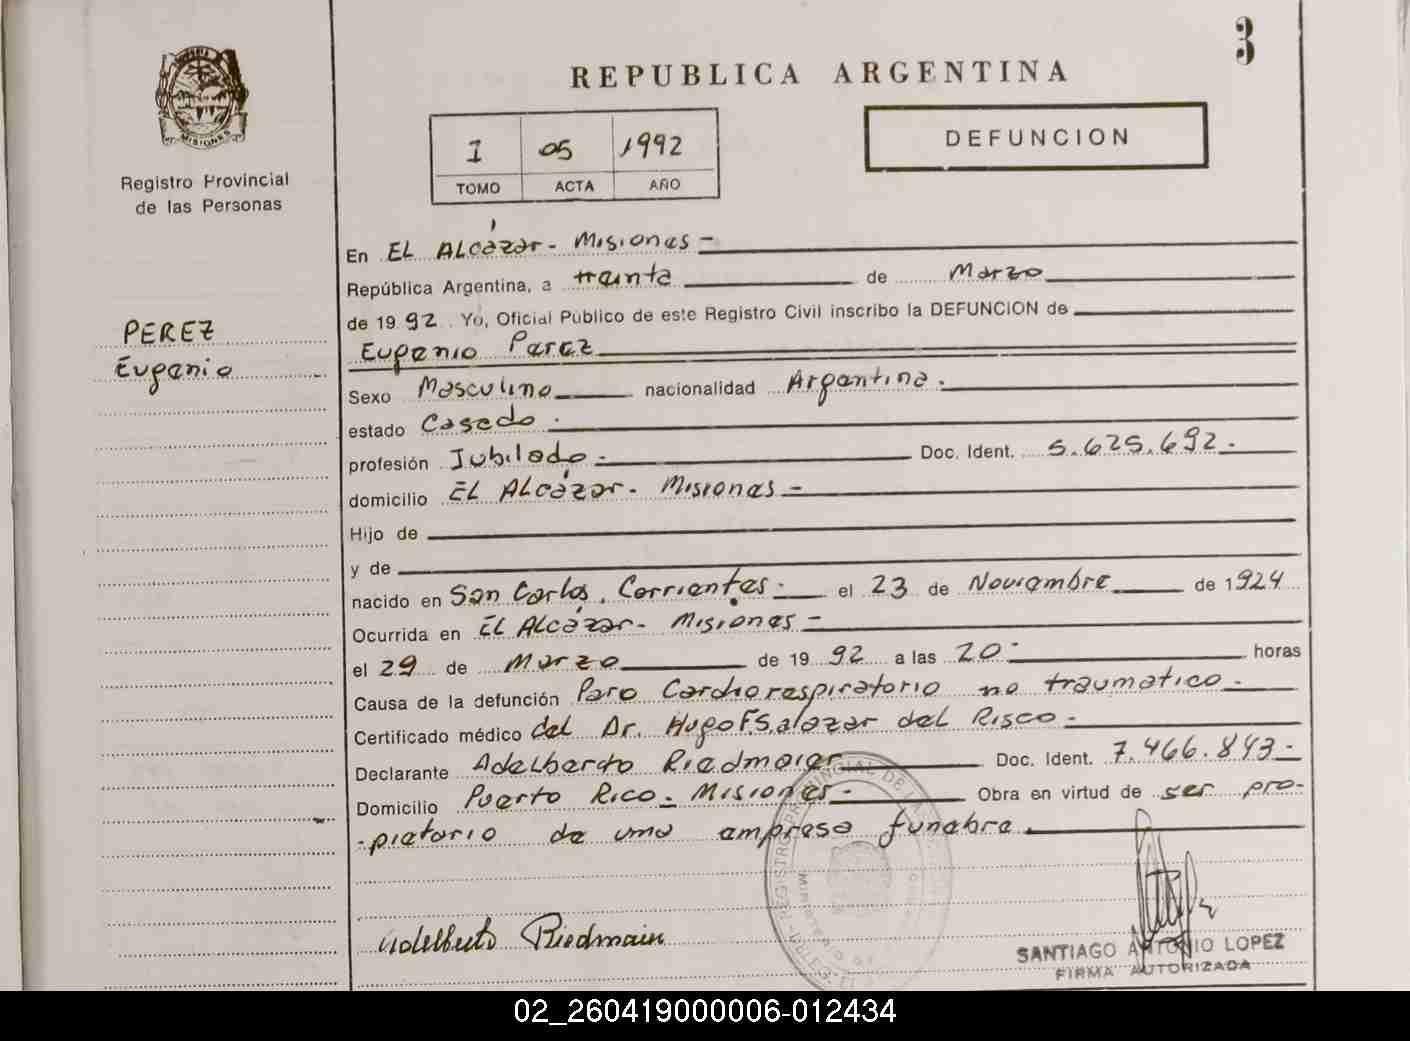 3
REPUBLICA ARGENTINA
MISIONES
Registro Provincial
de las Personas
I 05 1992
TOMO ACTA AÑO
DEFUNCION
PEREZ
Eugenio
En EL ALcázar - Misiones -
República Argentina, a treinta de Marzo
de 1992. Yo, Oficial Público de este Registro Civil inscribo la DEFUNCION de
Eugenio Perez
Sexo Masculino nacionalidad Argentina.
estado Casado.
profesión Jubilado.- Doc. Ident. 5.625.692.-
domicilio EL ALcázar - Misiones -
Hijo de
y de
nacido en San Carlos, Corrientes.- el 23 de Noviembre de 1924
Ocurrida en EL ALcázar - Misiones -
el 29 de Marzo de 1992 a las 20.- horas
Causa de la defunción Paro Cardiorespiratorio no traumatico.-
Certificado médico del Dr. Hugo F. Salazar del Risco.-
Declarante Adelberto Riedmaier Doc. Ident. 7.466.843.-
Domicilio Puerto Rico - Misiones.- Obra en virtud de ser pro-
-pietario de una empresa funebre.
Adelberto Riedmain
SANTIAGO ANTONIO LOPEZ
FIRMA AUTORIZADA
02_260419000006-012434